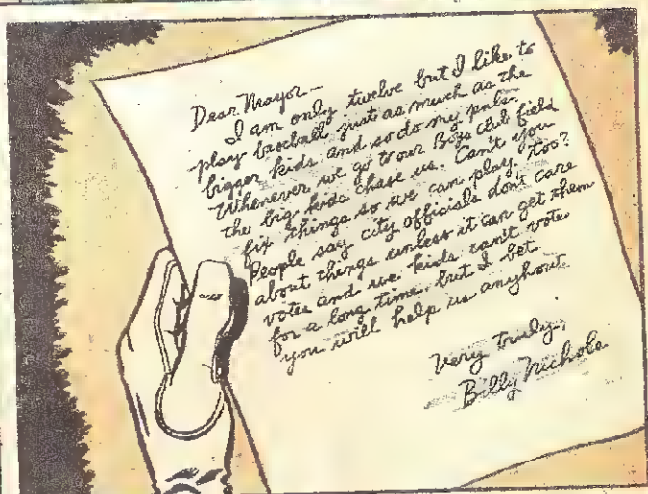 Dear Mayor—
I am only twelve but I like to
play baseball just as much as the
bigger kids and so do my pals.
Whenever we go to our Boys club field
the big kids chase us. Can't you
fix things so we can play too?
People say city officials don't care
about things unless it can get them
votes and we kids can't vote
for a long time, but I bet
you will help us anyhow
Very truly,
Billy Nichols